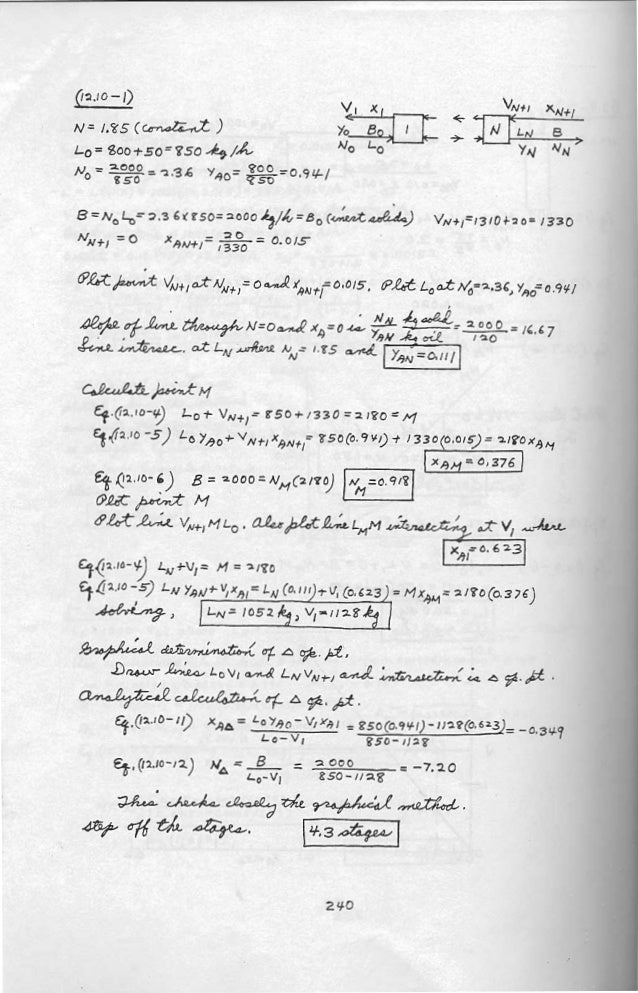 (12.10-1)
N = 1.85 (constant)
L0 = 800+50 = 850 kg/h
N0 = 2000/850 = 2.36 YA0 = 800/850 = 0.941
V1 X1 VN+1 XN+1
Y0 B0 1 N LN B
N0 L0 YN NN
B = N0 L0 = 2.36x850 = 2000 kg/h = B0 (inert solids) VN+1 = 1310+20 = 1330
NN+1 = 0 XAN+1 = 20/1330 = 0.015
Plot point VN+1 at NN+1 = 0 and XAN+1 = 0.015. Plot L0 at N0 = 2.36, YA0 = 0.941
slope of line through N=0 and XA = 0 is NN kg solid / YAN kg oil = 2000/120 = 16.67
Line intersec. at LN where NN = 1.85 and YAN = 0.111
Calculate point M
Eq.(12.10-4) L0 + VN+1 = 850+1330 = 2180 = M
Eq.(12.10-5) L0 YA0 + VN+1 XAN+1 = 850(0.941) + 1330(0.015) = 2180 XAM
XAM = 0.376
Eq (12.10-6) B = 2000 = NM(2180) NM = 0.918
Plot point M
Plot line VN+1 M L0. Also plot line LM M intersecting at V1 where
XA1 = 0.623
Eq(12.10-4) LN + V1 = M = 2180
Eq.(12.10-5) LN YAN + V1 XA1 = LN (0.111) + V1 (0.623) = M XAM = 2180(0.376)
solving, LN = 1052 kg, V1 = 1128 kg
Graphical determination of Δ op. pt.
Draw lines L0V1 and LNVN+1 and intersection is Δ op. pt.
Analytical calculation of Δ op. pt.
Eq.(12.10-11) XAΔ = (L0 YA0 - V1 XA1)/(L0 - V1) = (850(0.941) - 1128(0.623))/(850 - 1128) = -0.349
Eq.(12.10-12) NΔ = B/(L0-V1) = 2000/(850-1128) = -7.20
This checks closely the graphical method.
step off the stages. 4.3 stages
240